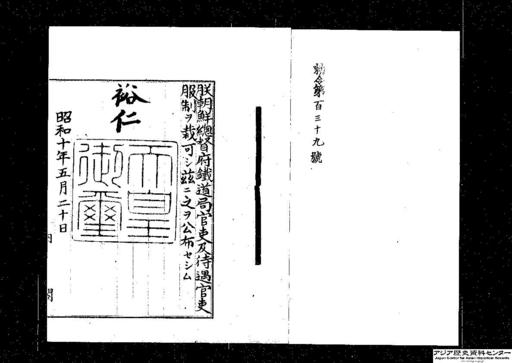 勅令第百三十九號
朕朝鮮總督府鐵道局官吏及待遇官吏
服制ヲ裁可シ茲ニ之ヲ公布セシム
裕仁
天皇
御璽
昭和十年五月二十日
内閣
アジア歴史資料センター
Japan Center for Asian Historical Records